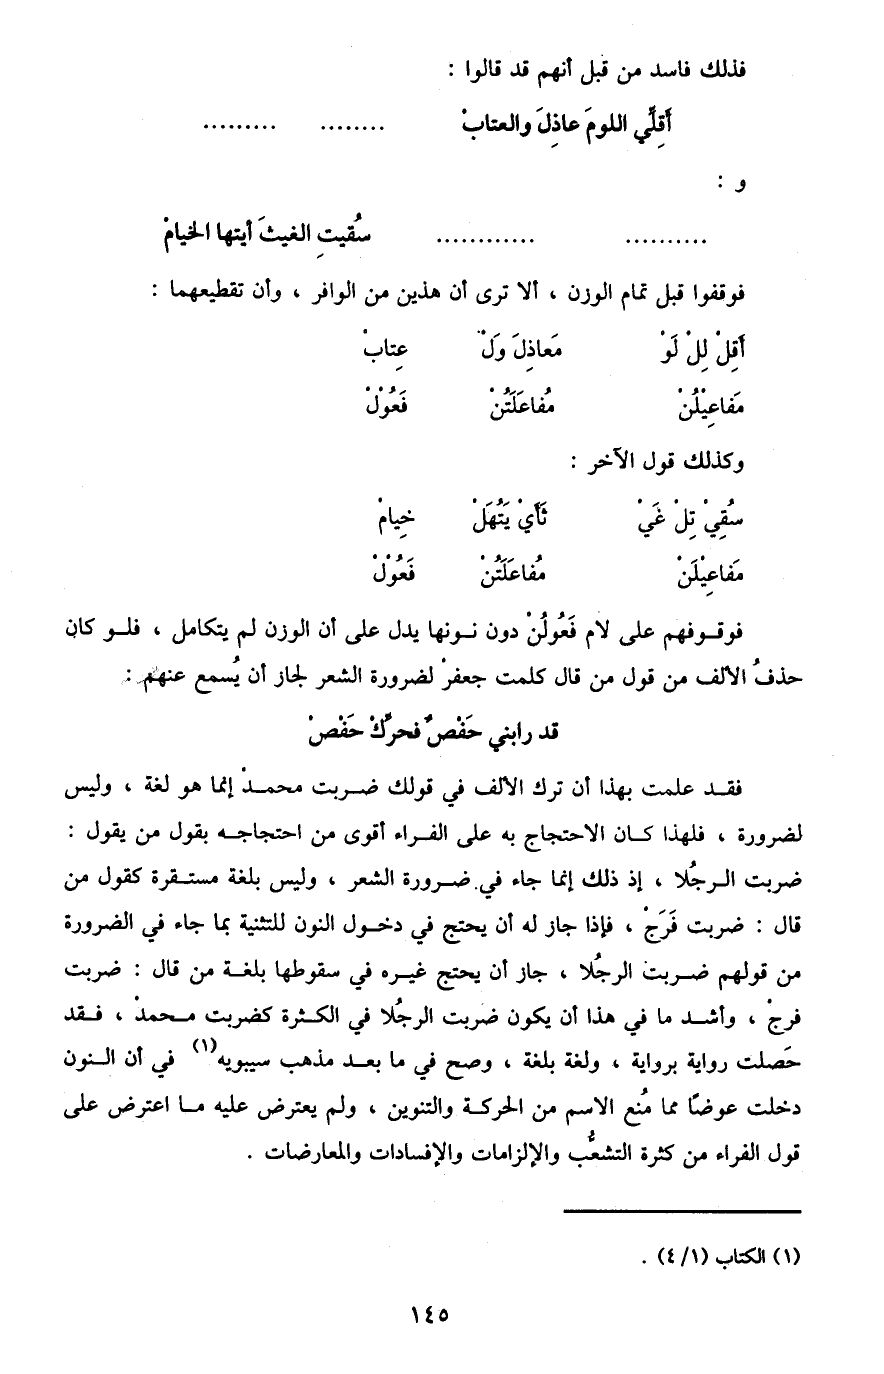 فذلك فاسد من قبل أنهم قد قالوا :
أَقِلِّي اللومَ عاذِلَ والعتابْ ........ .........
و :
.......... ............ سقُيتِ الغيثَ أيتها الخيامْ
فوقفوا قبل تمام الوزن ، ألا ترى أن هذين من الوافر ، وأن تقطيعهما :
أَقِلْ لِلْ لَوْ مَعاذِلَ وَلْ عِتابْ
مَفاعِيْلُنْ مُفاعَلَتُنْ فَعُوْلْ
وكذلك قول الآخر :
سُقِيْ تِلْ غَيْ ثَأَيْ يَتُهَلْ خِيامْ
مَفاعِيْلَنْ مُفاعَلَتُنْ فَعُوْلْ
فوقـوفهم على لام فَعُولُنْ دون نـونها يدل على أن الوزن لم يتكامل ، فلـو كان
حذفُ الألف من قول من قال كلمت جعفرْ لضرورة الشعر لجاز أن يُسمع عنهم :
قد رابني حَفْصٌ فحرِّكْ حَفْصْ
فقـد علمت بهذا أن ترك الألف في قولك ضـربت محمـدْ إنما هو لغة ، وليس
لضرورة ، فلهذا كـان الاحتجاج به على الفـراء أقوى من احتجاجـه بقول من يقول :
ضربت الـرجُلا ، إذ ذلك إنما جاء في ضـرورة الشعر ، وليس بلغة مستـقرة كقول من
قال : ضربت فَرَجْ ، فإذا جاز له أن يحتج في دخـول النون للتثنية بما جاء في الضرورة
من قولهم ضـربت الرجُلا ، جاز أن يحتج غيـره في سقوطها بلغـة من قال : ضربت
فرجْ ، وأشـد ما في هذا أن يكون ضربت الرجُلا في الكـثرة كضربت مـحمدْ ، فـقد
حَصلت رواية برواية ، ولغة بلغة ، وصح في ما بعـد مذهب سيبويه(١) في أن النـون
دخلت عوضًا مما مُنع الاسم من الحركـة والتنوين ، ولم يعترض عليه مـا اعترض على
قول الفراء من كثرة التشعُّب والإلزامات والإفسادات والمعارضات .
(١) الكتاب (٤/١) .
١٤٥